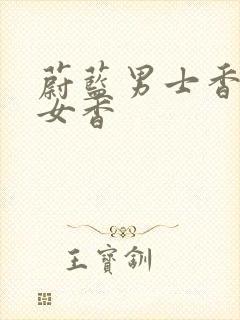 蔚藍男士香
女香
王寶釧